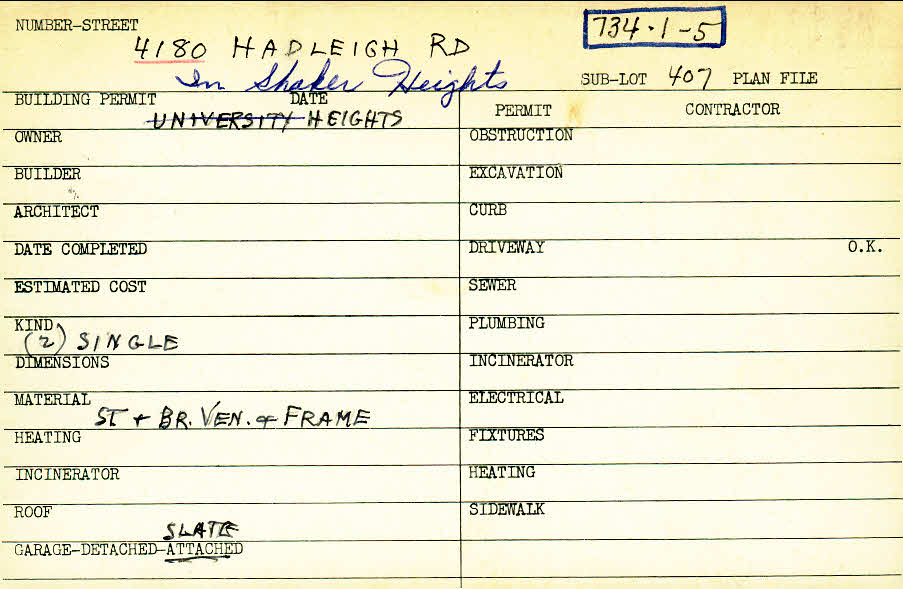 NUMBER-STREET
4180 HADLEIGH RD
734-1-5
In Shaker Heights
SUB-LOT 407 PLAN FILE
BUILDING PERMIT DATE
UNIVERSITY HEIGHTS
PERMIT CONTRACTOR
OWNER
OBSTRUCTION
BUILDER
EXCAVATION
ARCHITECT
CURB
DATE COMPLETED
DRIVEWAY O.K.
ESTIMATED COST
SEWER
KIND
(2) SINGLE
PLUMBING
DIMENSIONS
INCINERATOR
MATERIAL
ST + BR. VEN. of FRAME
ELECTRICAL
HEATING
FIXTURES
INCINERATOR
HEATING
ROOF
SLATE
SIDEWALK
GARAGE-DETACHED-ATTACHED